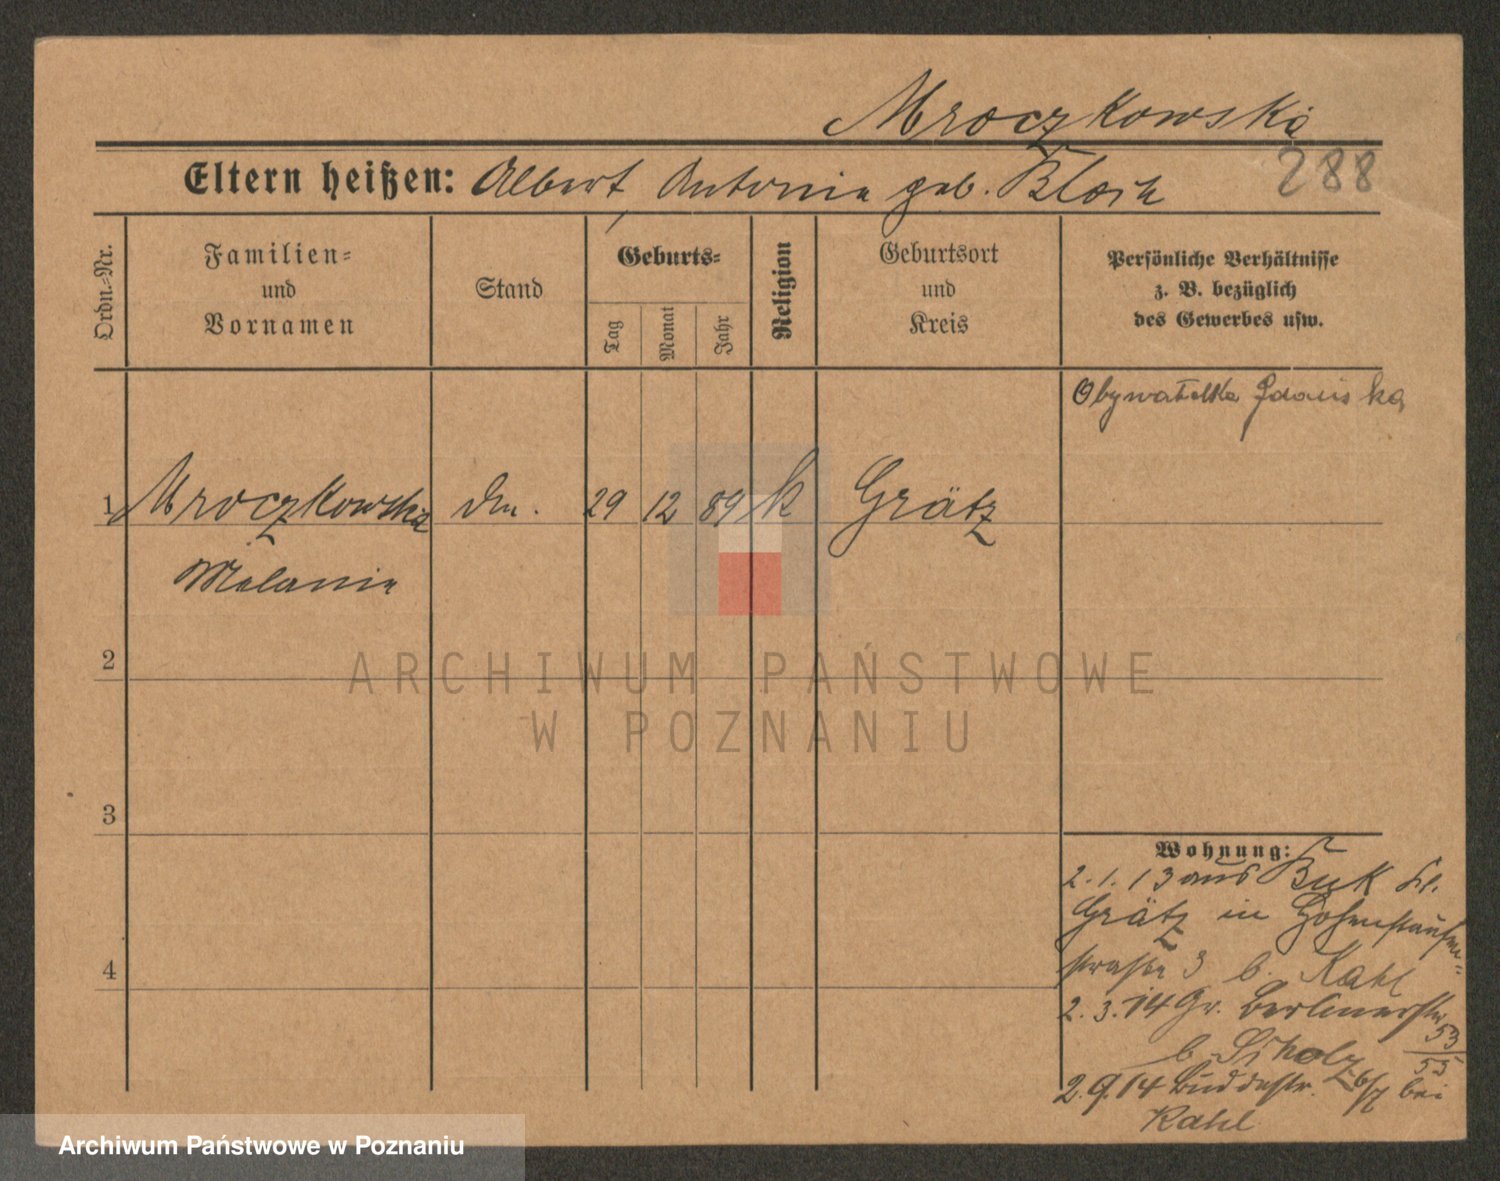 Mroczkowska
Eltern heißen: Albert, Antonie geb. Block
288
Ordn.=Nr.
Familien=
und
Vornamen
Stand
Geburts=
Tag
Monat
Jahr
Religion
Geburtsort
und
Kreis
Persönliche Verhältnisse
z. B. bezüglich
des Gewerbes usw.
Obywatelka
1 Mroczkowska 29 12 89 k Grätz
Melanie
2
ARCHIWUM PAŃSTWOWE
W POZNANIU
3
Wohnung:
2.1.13 aus Buk
Grätz in Hohenstaufen=
straße 3 b. Kahl
4
2.3.14 Gr. Berlinerstr
53/55
b. Scholz
2.9.14 Buddestr. bei
Kahl
Archiwum Państwowe w Poznaniu